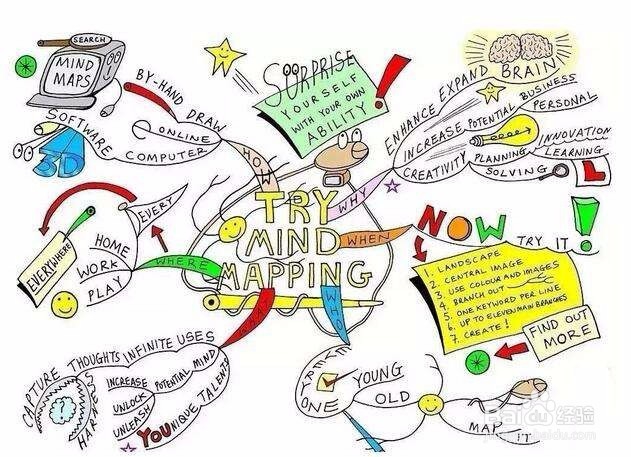 SEARCH
MIND
MAPS
BY-HAND DRAW
ONLINE
COMPUTER
SOFTWARE
3D
HOW
SURPRISE
YOURSELF
WITH YOUR OWN
ABILITY
!
ENHANCE EXPAND BRAIN
INCREASE POTENTIAL BUSINESS
PERSONAL
CREATIVITY PLANNING INNOVATION
LEARNING
SOLVING
L
WHY
TRY
MIND
MAPPING
WHEN
NOW
TRY IT
!
1. LANDSCAPE
2. CENTRAL IMAGE
3. USE COLOUR AND IMAGES
4. BRANCH OUT
5. ONE KEYWORD PER LINE
6. UP TO ELEVEN MAIN BRANCHES
7. CREATE!
FIND OUT
MORE
EVERY
EVERYWHERE
HOME
WORK
PLAY
WHERE
WHAT
CAPTURE THOUGHTS INFINITE USES
INCREASE POTENTIAL MIND
UNLOCK
UNLEASH
YOUNIQUE TALENTS
WHO
EVERYONE
YOUNG
OLD
MAP IT
Baidu 经验
jingyan.baidu.com